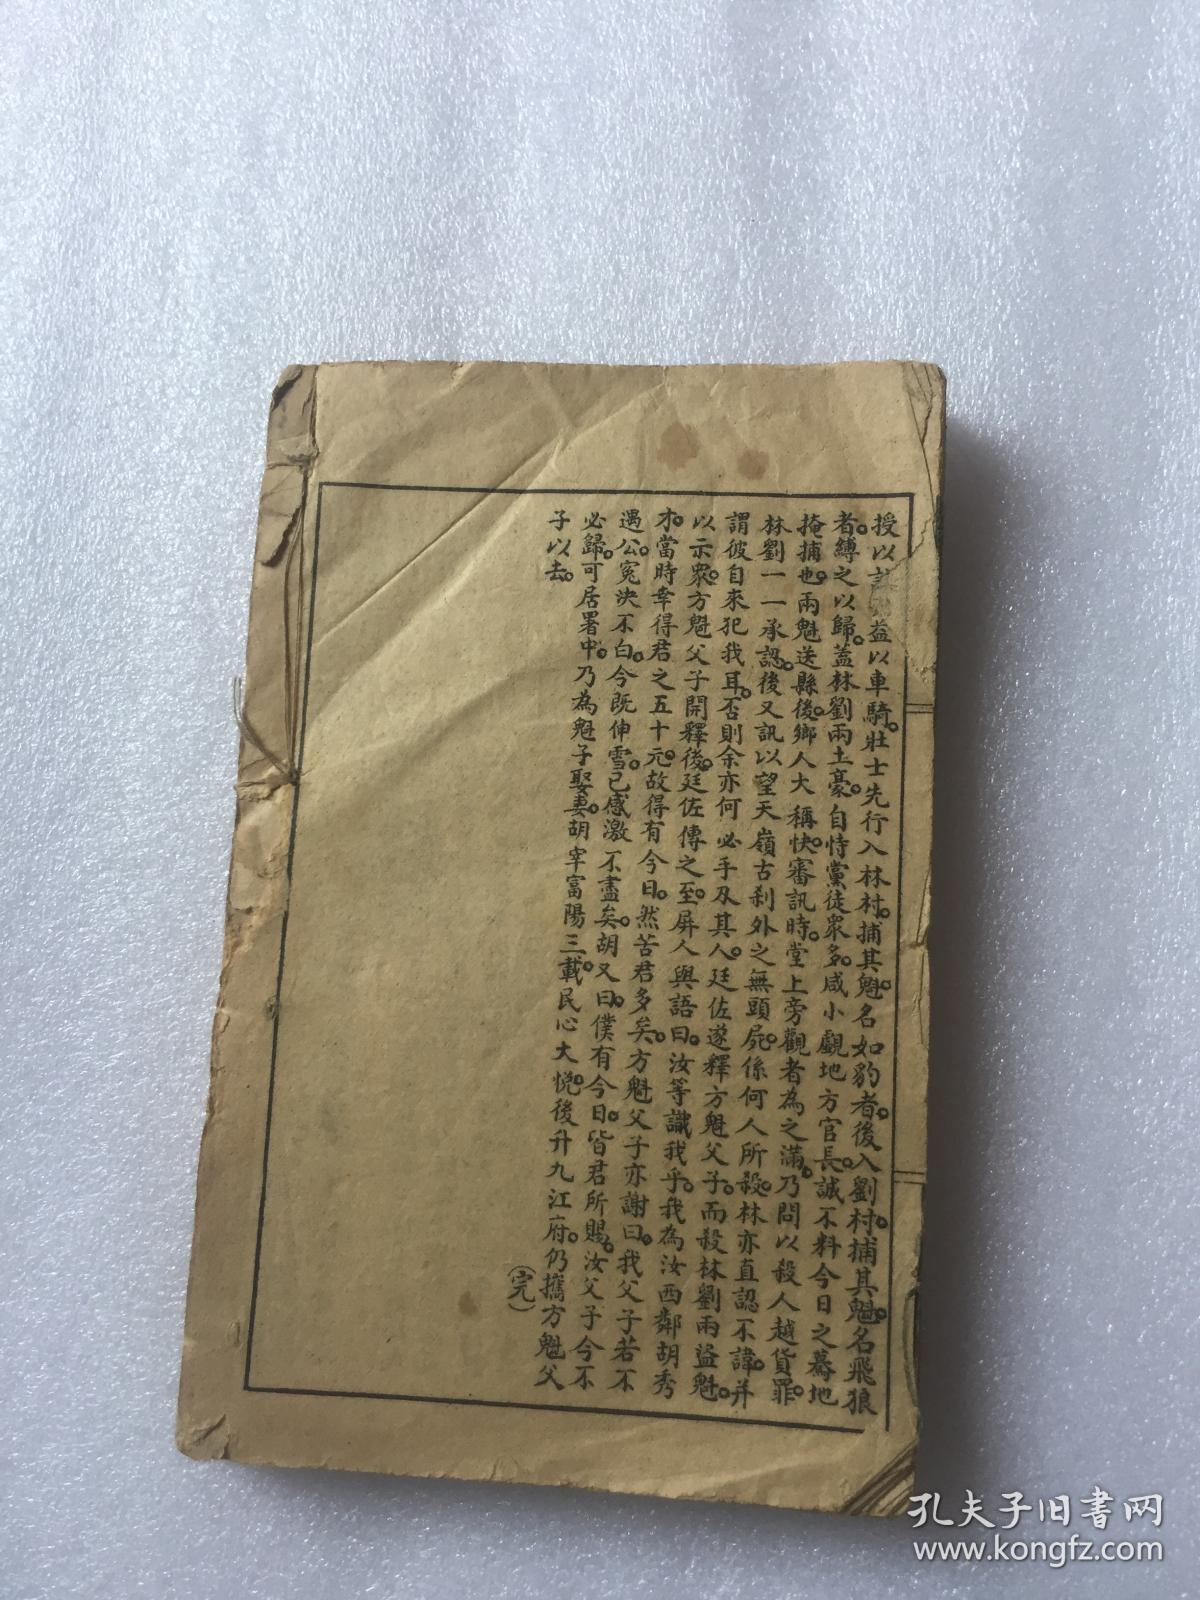 授以益以車騎。壯士先行入林村。捕其魁。名如豹者。後入劉村。捕其魁。名飛狼
者。縛之以歸。蓋林劉兩土豪。自恃黨徒眾多。咸小覷地方官長。誠不料今日之驀地
掩捕也。兩魁送縣後。鄉人大稱快。審訊時。堂上旁觀者為之滿。乃問以殺人越貨罪。
林劉一一承認。後又訊以望天嶺古刹外之無頭屍。係何人所殺。林亦直認不諱。并
謂彼自來犯我耳。否則余亦何必手及其人。廷佐遂釋方魁父子。而殺林劉兩盜魁。
以示眾。方魁父子開釋後。廷佐傳之至。屏人與語曰。汝等識我乎。我為汝西鄰胡秀
才。當時幸得君之五十元。故得有今日。然苦君多矣。方魁父子亦謝曰。我父子若不
遇公。冤決不白。今既伸雪。已感激不盡矣。胡又曰。僕有今日。皆君所賜。汝父子今不
必歸。可居署中。乃為魁子娶妻。胡宰富陽三載。民心大悅。後升九江府。仍攜方魁父
子以去。
（完）
孔夫子旧书网
www.kongfz.com